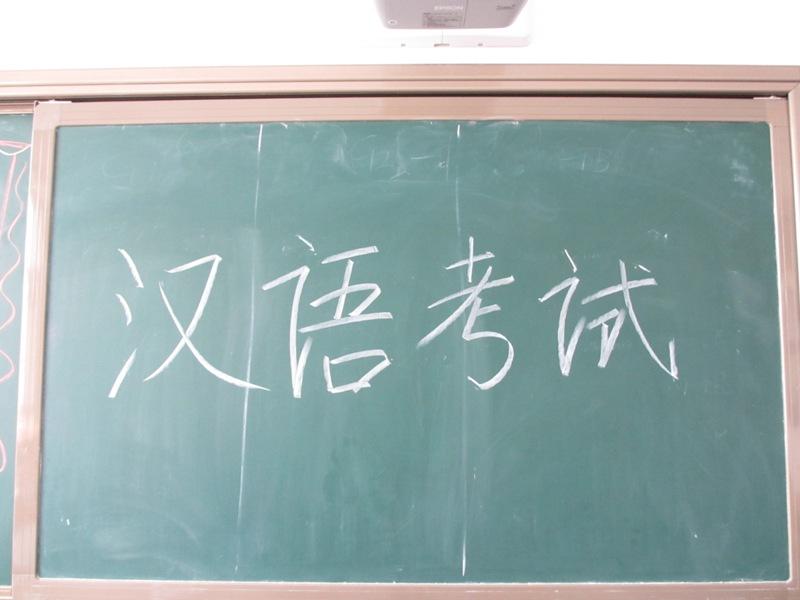 EPSON
汉语考试